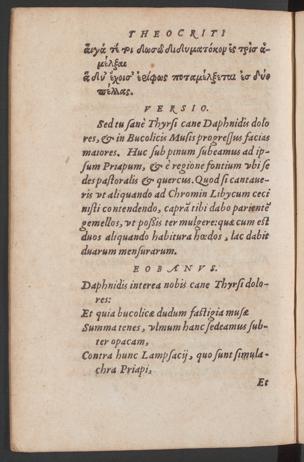 THEOCRITI
αἶγά τέ τοι δωσῶ διδυματόκον ἐς τρὶς ἀ-
μέλξαι
ἃ δύ' ἔχοισ' ἐρίφως ποταμέλξεται ἐς δύο
πέλλας.
VERSIO.
Sed tu sanè Thyrsi cane Daphnidis dolo
res, & in Bucolicis Musis progressus facias
maiores. Huc sub pinum subeamus ad ip-
sum Priapum, & è regione fontium vbi se
des pastoralis & quercus. Quod si cantaue-
ris vt aliquando ad Chromin Libycum ceci
nisti contendendo, caprã tibi dabo parientẽ
gemellos, vt possis ter mulgere: quæ cum est
duos aliquando habitura hœdos, lac dabit
duarum mensurarum.
EOBANVS.
Daphnidis interea nobis cane Thyrsi dolo-
res:
Et quia bucolicæ dudum fastigia musæ
Summa tenes, vlmum hanc sedeamus sub-
ter opacam,
Contra hunc Lampsacij, quo sunt simula-
chra Priapi,
Et